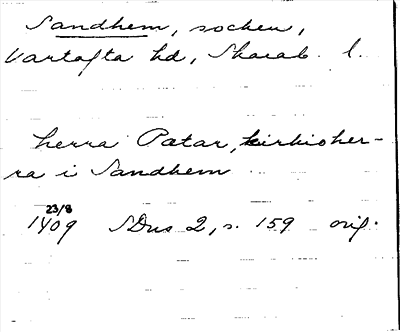 Sandhem, socken,
Vartofta hd, Skarab. l.
herra Patar, kirkioher-
ra i Sandhem
23/8
1409 SDns 2, s. 159 orig.